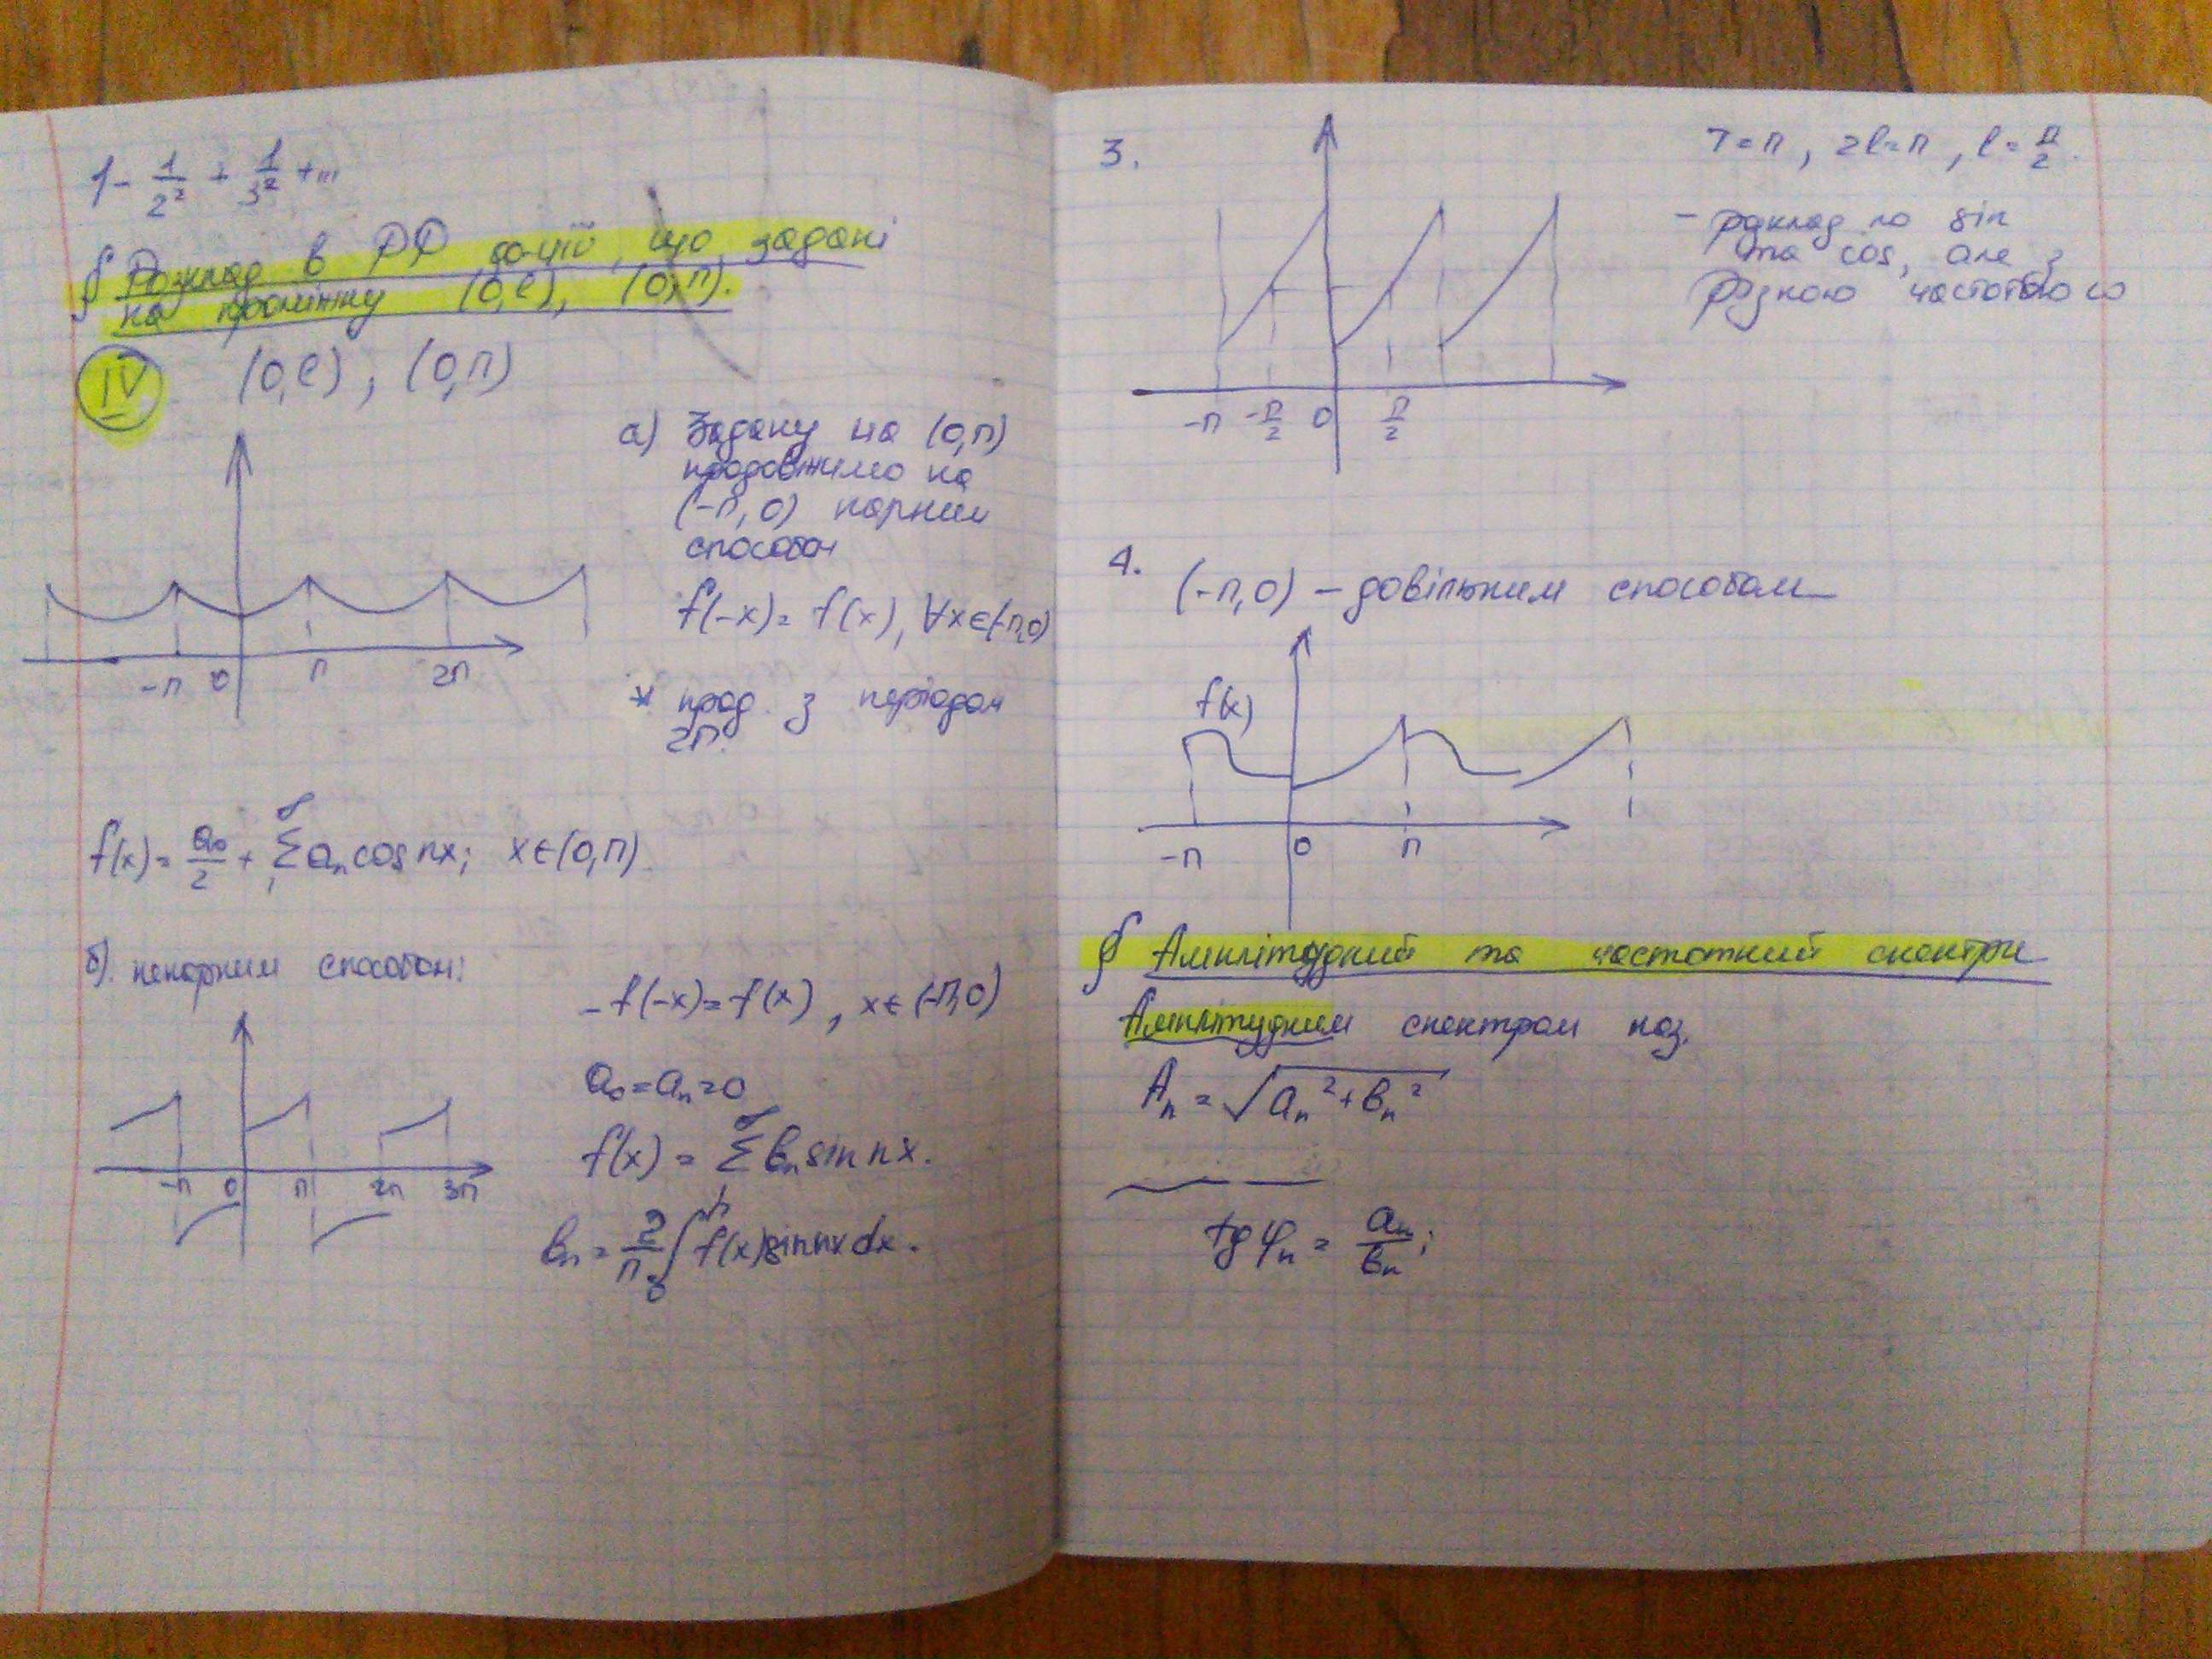 1 - 1/2² + 1/3² + ...
§ Розклад в РФ ф-цій, що задані
на проміжку (0,ℓ), (0,π).
IV (0,ℓ), (0,π)
а) Задану на (0,π)
продовжимо на
(-π,0) парним
способом
f(-x) = f(x), ∀x∈(-π,0)
* прод. з періодом
2π.
-π 0 π 2π
f(x) = a₀/2 + ∑₁^∞ aₙ cos nx; x∈(0,π)
б). непарним способом:
-f(-x) = f(x), x∈(-π,0)
a₀ = aₙ = 0
f(x) = ∑₁^∞ bₙ sin nx.
bₙ = 2/π ∫₀^π f(x) sin nx dx.
-π 0 π 2π 3π
3.
T = π, 2ℓ = π, ℓ = π/2.
- розклад по sin
та cos, але з
різною частотою
-π -π/2 0 π/2
4. (-π,0) – довільним способом
f(x)
-π 0 π
§ Амплітудний та частотний спектри
Амплітудним спектром наз.
Aₙ = √(aₙ² + bₙ²)
tg φₙ = aₙ/bₙ;